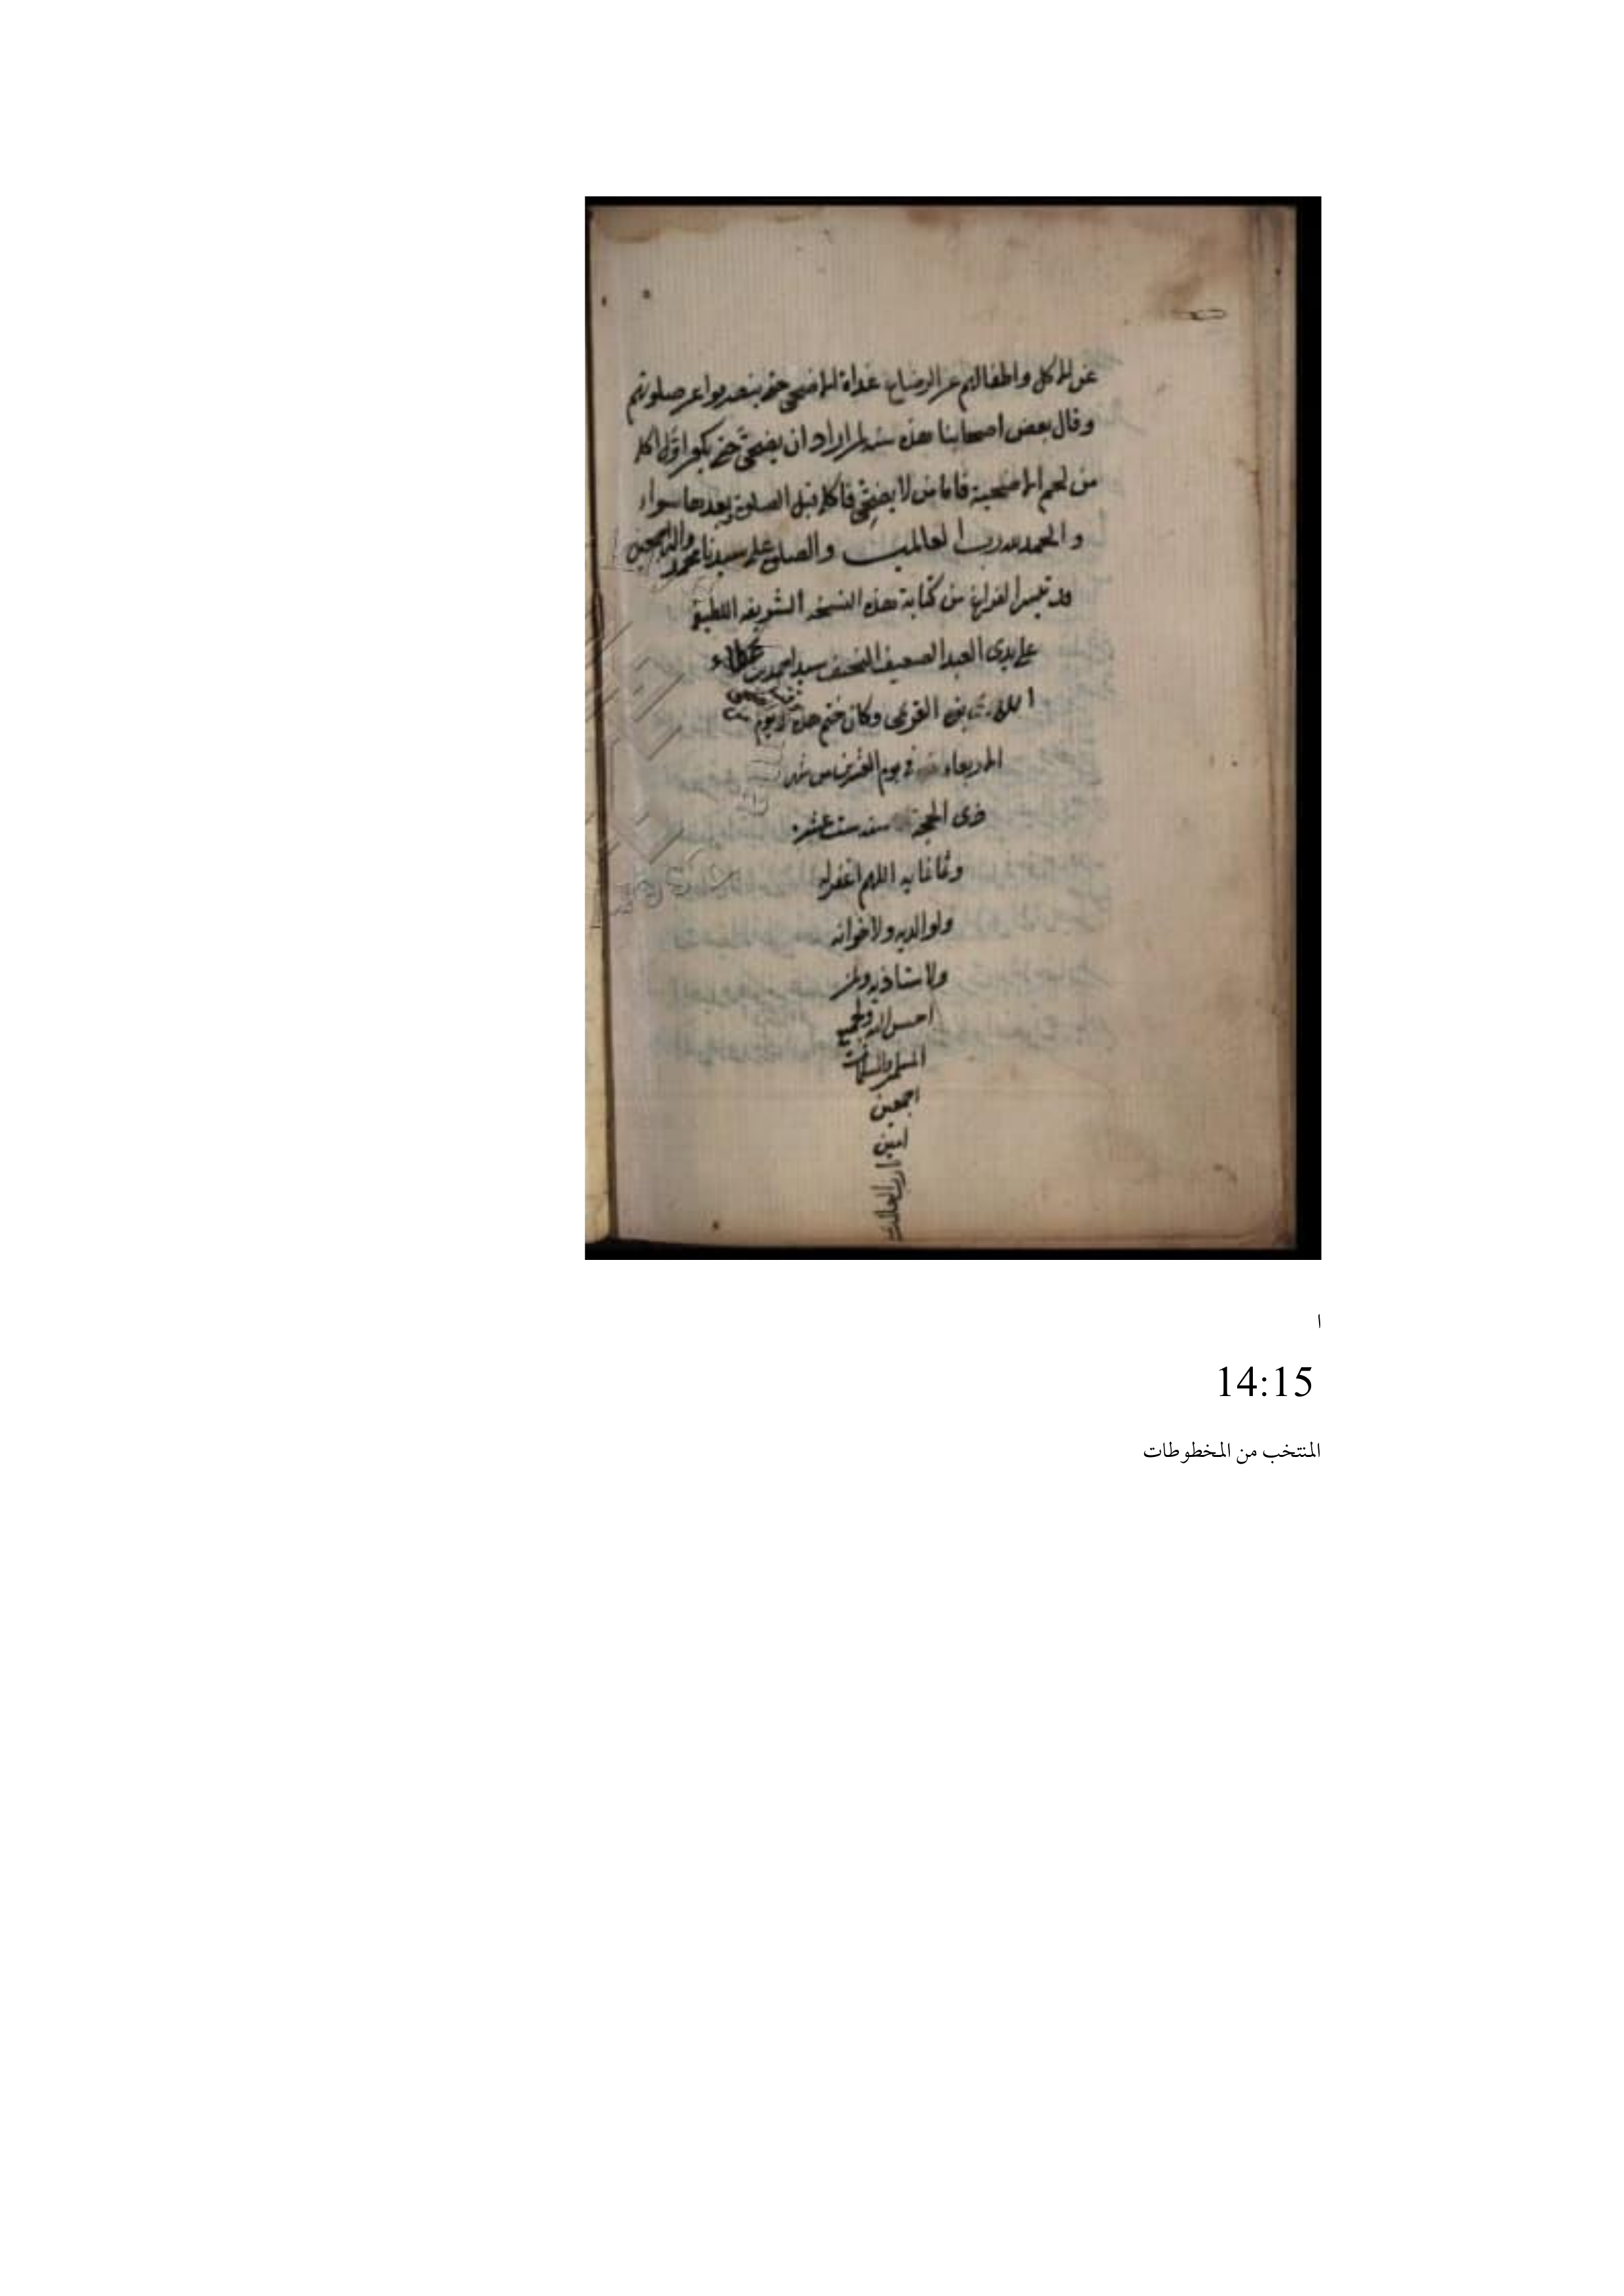 عن الاكل واطفالهم عن الرضاع غداة الاضحى حتى ينصرفوا عن صلوتهم
وقال بعض اصحابنا هذه سنة لمن اراد ان يضحّى حتى يكون اوّل اكله
من لحم الاضحية فاما من لا يضحّى فاكله قبل الصلوة وبعدها سواء
و الحمد لله رب العالمين والصلى على سيدنا محمد واله اجمعين
قد تيسر الفراغ من كتابة هذه النسخه الشريفه اللطيفة
على يدى العبد الضعيف النحيف سيد احمد بن عطاء
الله بن القومى وكان ختم هذه يوم
الاربعاء فى يوم العشرين من شهر
ذى الحجة سنه ست عشر
اللهم اغفر له
ولوالديه ولاخوانه
ولاستاذيه ولمن
احسن اليه ولجميع
المسلمين والمسلمات
اجمعين
امين
يا رب العالمين
ا
14:15
المنتخب من المخطوطات